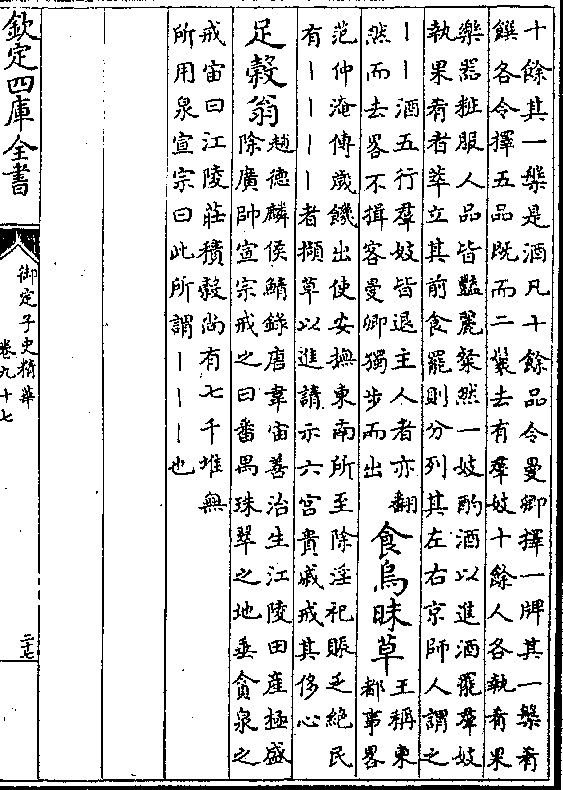 十餘其一槃是酒凡十餘品令曼卿擇一牌其一槃肴
饌各令擇五品既而二鬟去有羣妓十餘人各執肴果
樂器粧服人品皆豔麗粲然一妓酌酒以進酒罷羣妓
執果肴者萃立其前食罷則分列其左右京師人謂之
丨丨酒五行羣妓皆退主人者亦翻
然而去畧不揖客曼卿獨步而出
食烏昧草
王稱東
都事畧
范仲淹傳歲饑出使安撫東南所至除淫祀賑乏絶民
有丨丨丨丨者擷草以進請示六宮貴戚戒其侈心
足穀翁
趙德麟侯鯖錄唐韋宙善治生江陵田産極盛
除廣帥宣宗戒之曰番禺珠翠之地垂貪泉之
戒宙曰江陵莊積穀尚有七千堆無
所用泉宣宗曰此所謂丨丨丨也
欽定四庫全書
御定子史精華
卷九十七
二十七